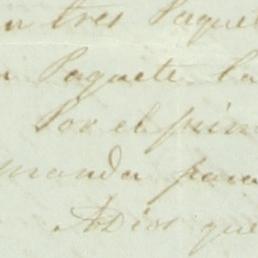 n tres Paque
n Paquete la
Por el prim
manda para
Adios que